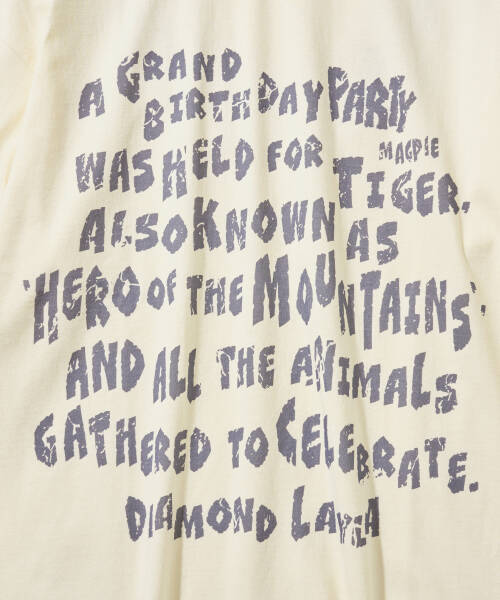 A GRAND
BIRTHDAY PARTY
WAS HELD FOR MAGPIE
TIGER,
ALSO KNOWN AS
'HERO OF THE MOUNTAINS'
AND ALL THE ANIMALS
GATHERED TO CELEBRATE.
DIAMOND LAYLA